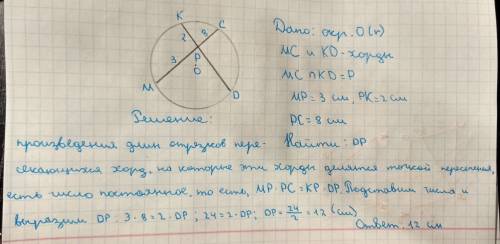 K
C
2
8
3
P
O
M
D
Дано: окр. O(r)
MC и KD - хорды
MC ∩ KD = P
MP = 3 см, PK = 2 см
PC = 8 см
Найти: DP
Решение:
произведения длин отрезков пере-
секающихся хорд, на которые эти хорды делятся точкой пересечения,
есть число постоянное, то есть, MP · PC = KP · DP. Подставим числа и
выразим DP: 3 · 8 = 2 · DP ; 24 = 2 · DP ; DP = 24/2 = 12 (см)
Ответ: 12 см